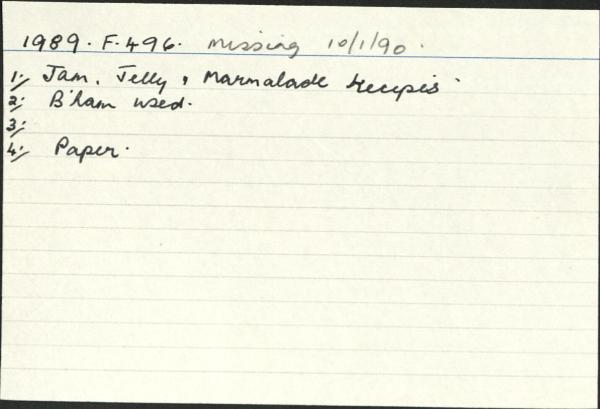 1989. F. 496. missing 10/1/90.
1. Jam, Jelly, Marmalade Recipes
2. B'ham used.
3.
4. Paper.